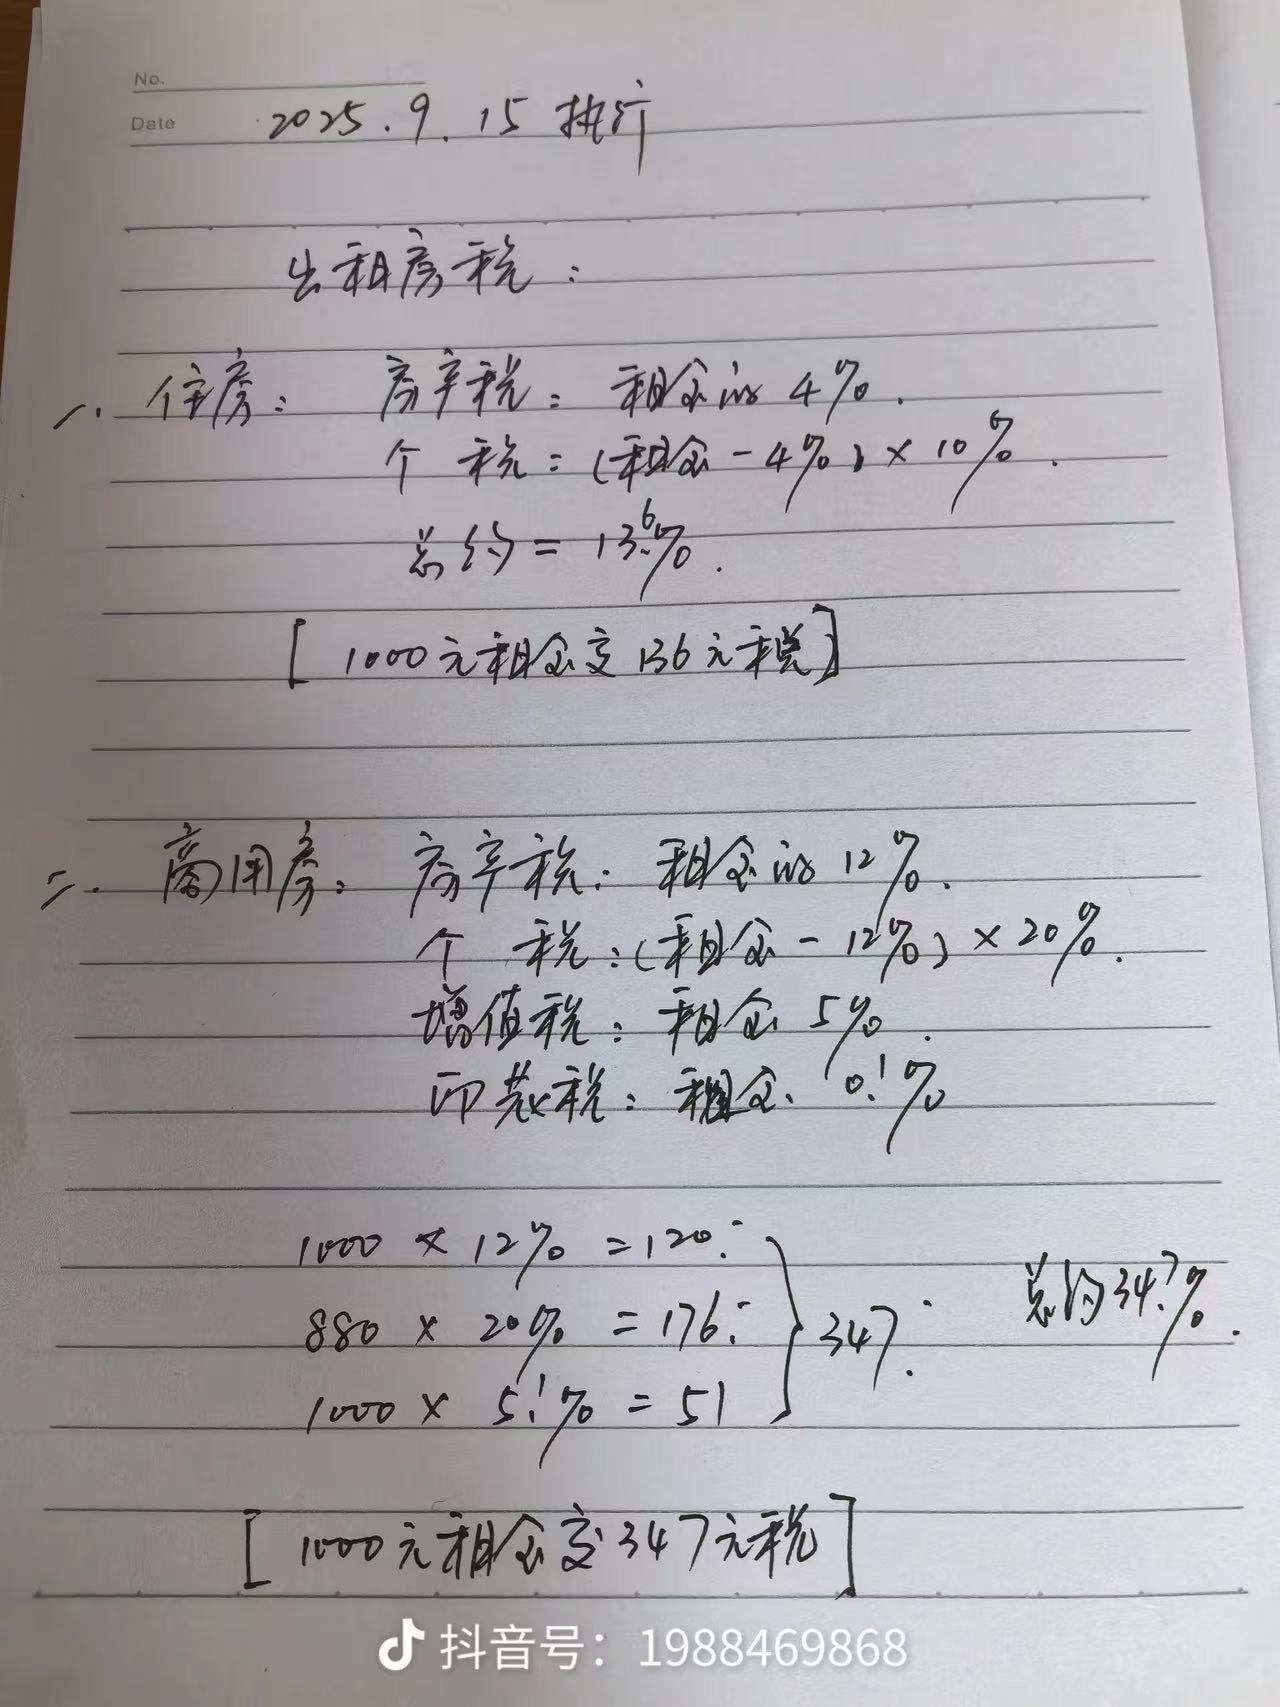 No.
Date 2025.9.15 执行
出租房税:
一. 住房: 房产税: 租金的 4%.
个 税: (租金-4%) × 10%.
总约 = 13.6%.
[1000元租金交136元税]
二. 商用房: 房产税: 租金的 12%.
个 税: (租金-12%) × 20%.
增值税: 租金 5%.
印花税: 租金. 0.1%
1000 × 12% = 120.
880 × 20% = 176.
347. 总约34.7%.
1000 × 5.1% = 51
[1000元租金交347元税]
抖音号: 1988469868